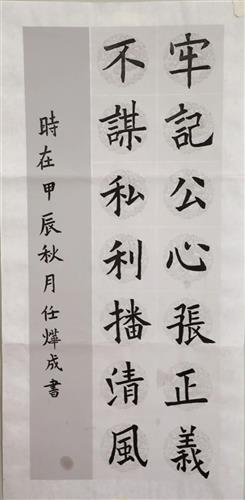 牢記公心張正義
不謀私利播清風
時在甲辰秋月任燁成書